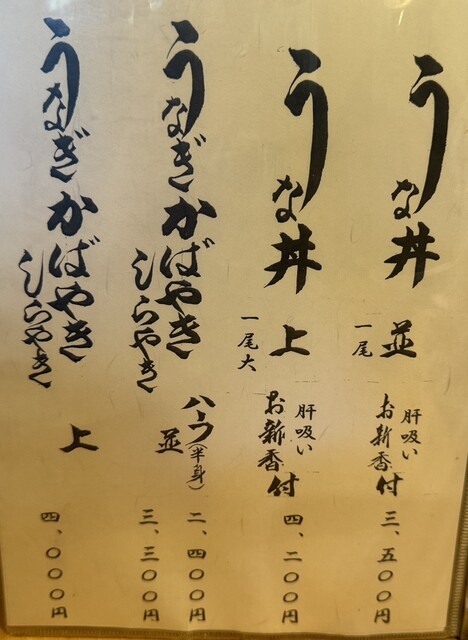 うな丼 並 一尾 肝吸い お新香付 三、五〇〇円
うな丼 上 一尾大 肝吸い お新香付 四、二〇〇円
うなぎかばやき
しらやき
ハーフ(半身) 二、四〇〇円
並 三、三〇〇円
うなぎかばやき
しらやき
上 四、〇〇〇円